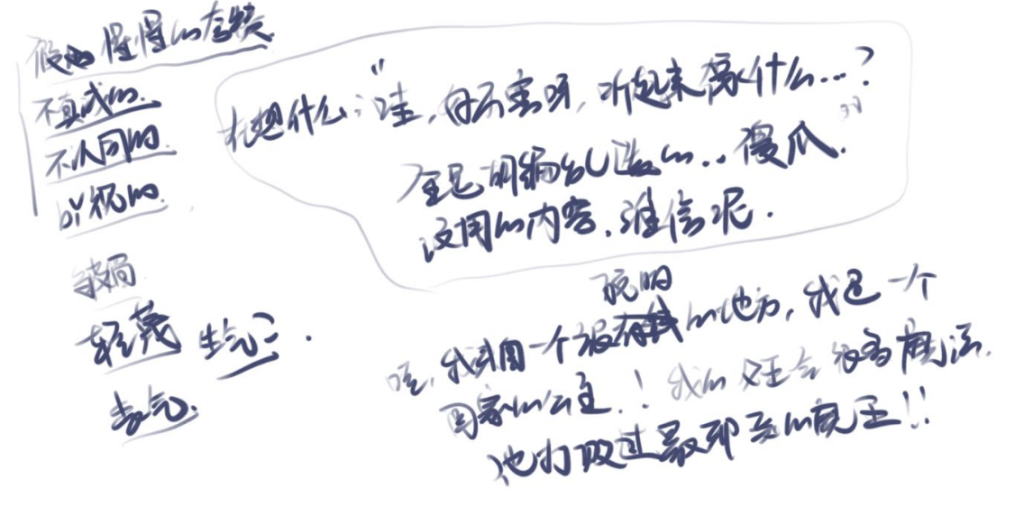 假如 慢慢的
不真诚的.
不认同的.
在想什么："哇，好厉害呀，听起来像什么…？
全是胡编乱造的…傻瓜."
没用的内容，谁信呢.
轻蔑 生气.
生气.
玩明
哇，我来自一个没有钱的地方，我是一个
国家的公主.！我的父王会很多魔法.
他打败过最邪恶的魔王!!